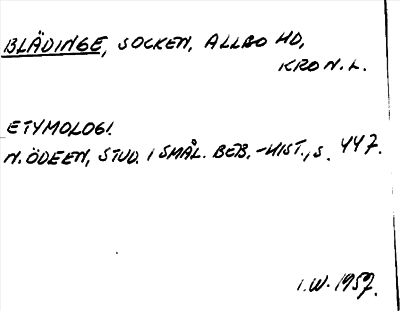 BLÄDINGE, SOCKEN, ALLBO HD,
KRON. L.
ETYMOLOGI.
N. ÖDEEN, STUD. I SMÅL. BEB.-HIST., S. 447.
I.W. 1957.